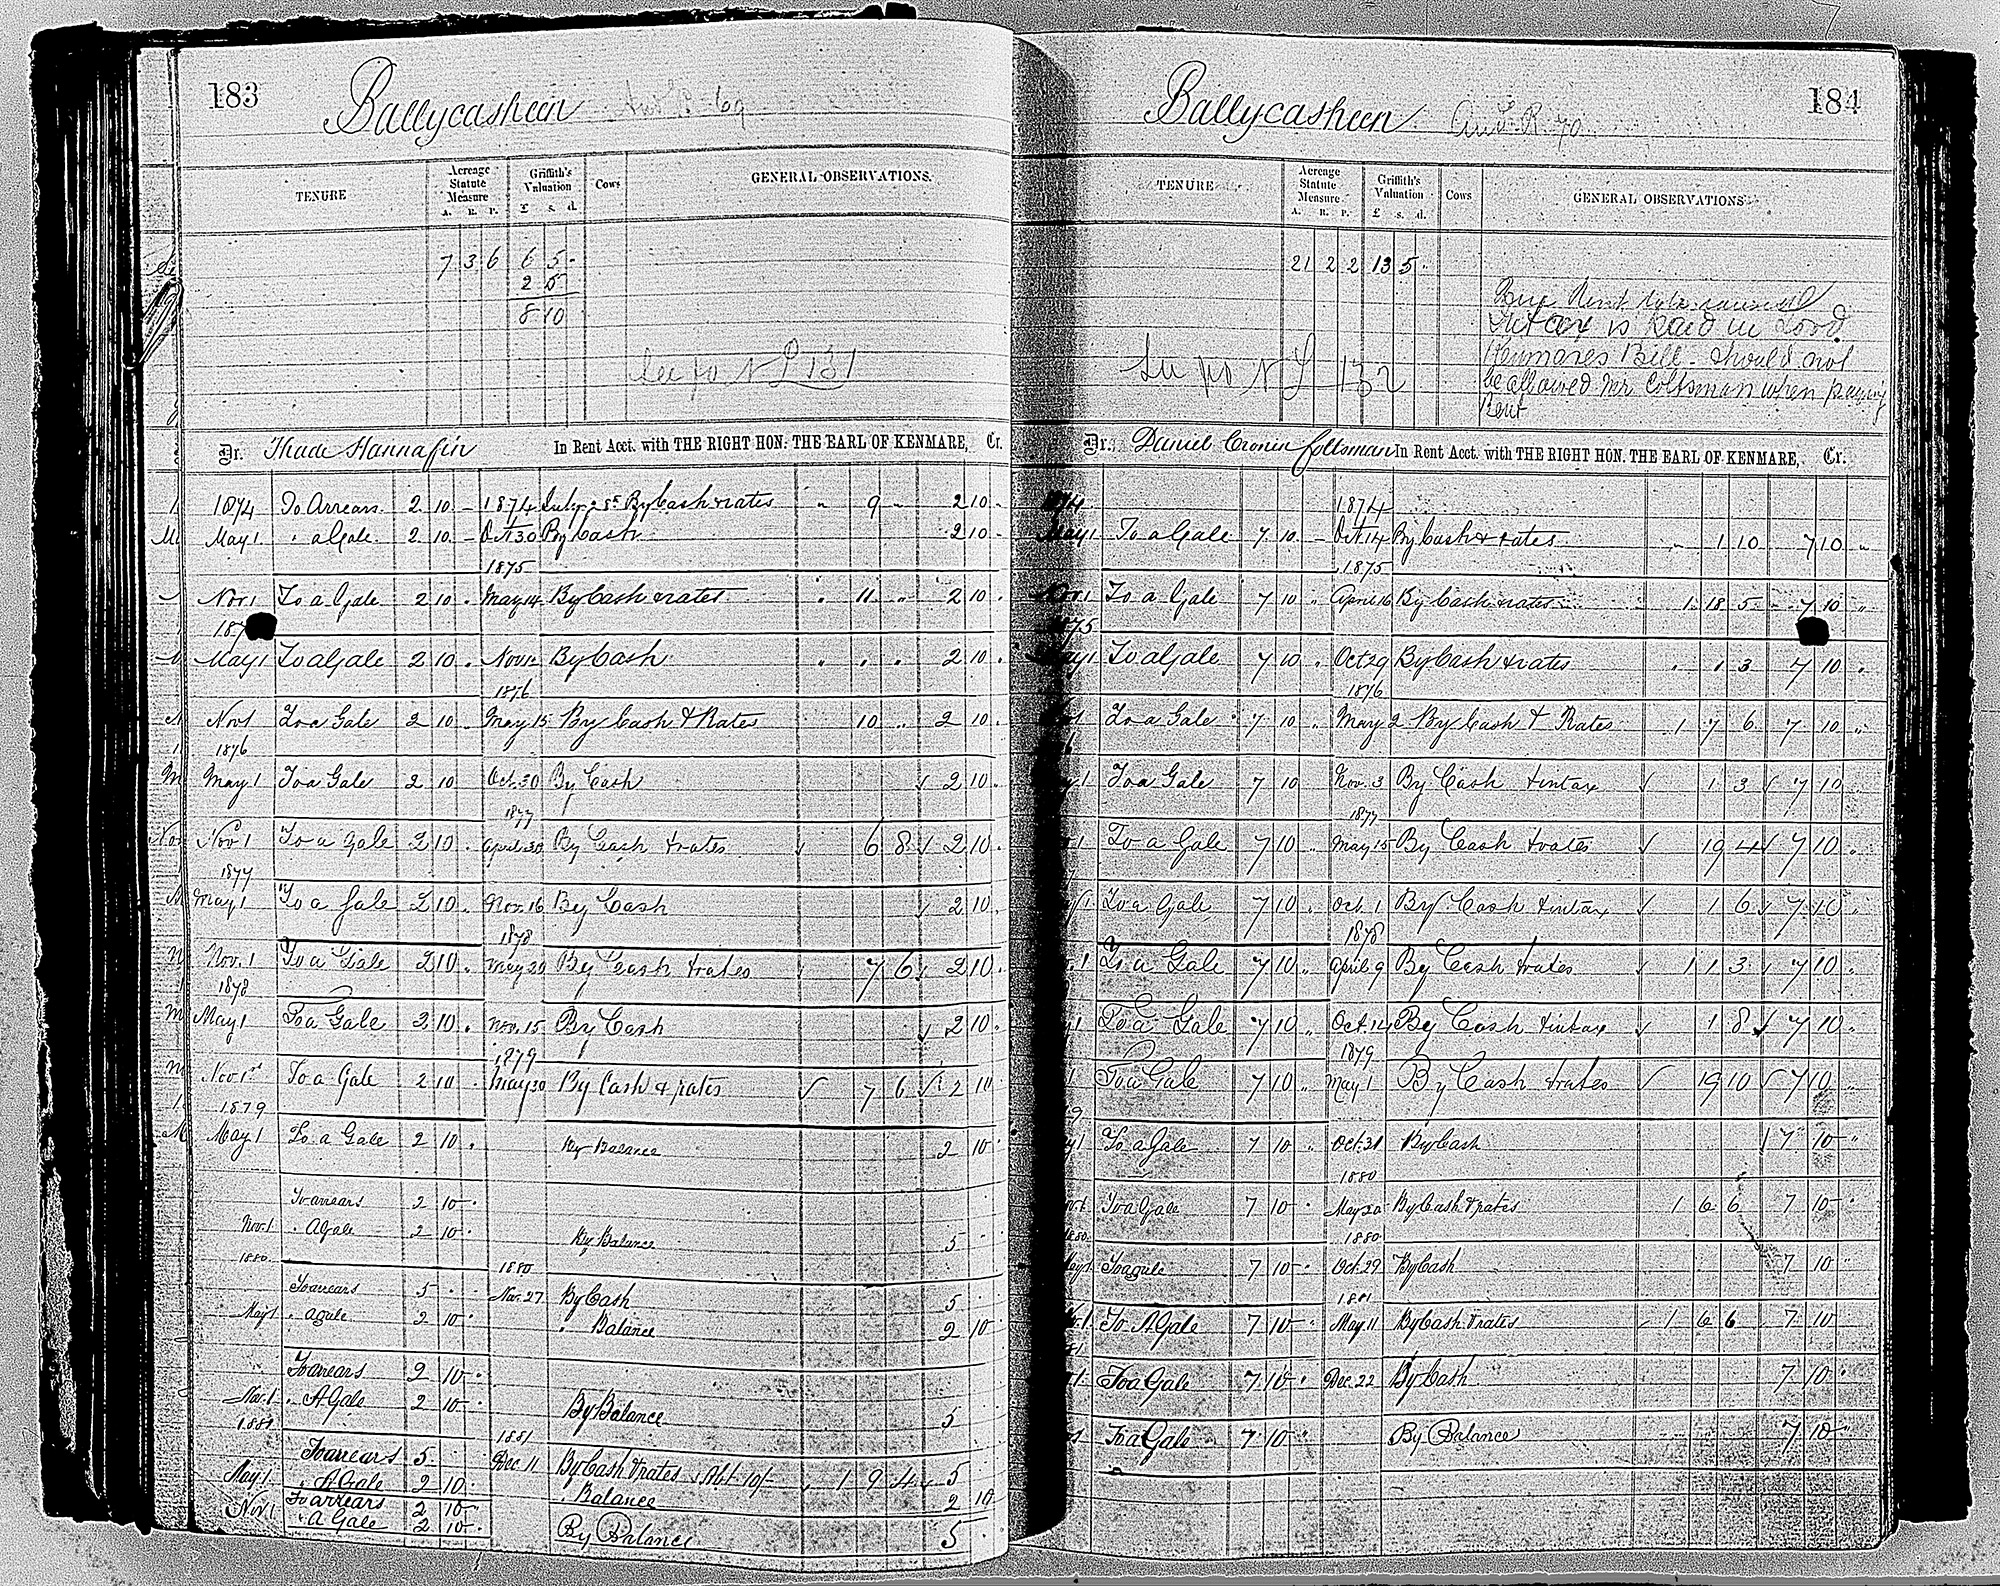 183
Ballycasheen
TENURE
Acreage Statute Measure
A. R. P.
Griffith's Valuation
£ s. d.
Cows
GENERAL OBSERVATIONS.
7 3 6 6 5 -
2 5
8 10
See fo N L 131
Dr. Thade Hannafin In Rent Acct. with THE RIGHT HON. THE EARL OF KENMARE, Cr.
1874 To Arrears 2 10 - 1874 July 28 By Cash & rates " 9 " 2 10 -
May 1 " a Gale 2 10 - Oct 30 By Cash 2 10 -
1875
Nov 1 To a Gale 2 10 . May 14 By Cash & rates " 11 " 2 10 .
187
May 1 To a Gale 2 10 . Nov 12 By Cash " " " 2 10 .
1876
Nov 1 To a Gale 2 10 . May 15 By Cash & Rates 10 " 2 10 .
1876
May 1 To a Gale 2 10 Oct. 30 By Cash ✓ 2 10 .
1877
Nov 1 To a Gale 2 10 . April 30 By Cash & rates ✓ 6 8 ✓ 2 10 .
1877
May 1 To a Gale 2 10 . Nov. 16 By Cash ✓ 2 10 .
1878
Nov. 1 To a Gale 2 10 . May 20 By Cash & rates ✓ 7 6 ✓ 2 10 .
1878
May 1 To a Gale 2 10 . Nov. 15 By Cash ✓ 2 10 .
1879
Nov 1st To a Gale 2 10 . May 30 By Cash & rates ✓ 7 6 ✓ 2 10
1879
May 1 To a Gale 2 10 . By Balance 2 10
To arrears 2 10 .
Nov. 1 " A Gale 2 10 . By Balance 5 . .
1880 1880
To arrears 5 . . Nov. 27 By Cash 5
May 1 " a gale 2 10 . " Balance 2 10
To arrears 2 10 .
Nov. 1 " A Gale 2 10 . By Balance 5
1881 1881
To arrears 5 . Dec. 11 By Cash & rates Abt 10/- ✓ 1 9 4 ✓ 5
May 1 " A Gale 2 10 . " Balance 2 10
To arrears 2 10 .
Nov 1 " A Gale 2 10 . By Balance 5 .
184
Ballycasheen
R 70
TENURE
Acreage Statute Measure
A. R. P.
Griffith's Valuation
£ s. d.
Cows
GENERAL OBSERVATIONS
21 2 2 13 5 .
Rent
Int ax is paid in Lord
Kenmares Bill - Should not
be allowed Mr Coltsman when paying
Rent
See fo N L 132
Dr. Daniel Cronin Coltsman In Rent Acct. with THE RIGHT HON. THE EARL OF KENMARE, Cr.
1874 1874
May 1 To a Gale 7 10 - Oct 14 By Cash & rates " 1 10 7 10 "
1875
Nov 1 To a Gale 7 10 " April 16 By Cash & rates 1 18 5 7 10 "
1875
May 1 To a Gale 7 10 . Oct 29 By Cash & rates . 1 3 7 10 .
1876
Nov 1 To a Gale 7 10 " May 2 By Cash & Rates 1 7 6 7 10 "
To a Gale 7 10 Nov. 3 By Cash & intax ✓ 1 3 ✓ 7 10
1877
To a Gale 7 10 " May 15 By Cash & rates ✓ 19 4 ✓ 7 10 .
To a Gale 7 10 . Oct. 1 By Cash & intax ✓ 1 6 ✓ 7 10 "
1878
To a Gale 7 10 " April 9 By Cash & rates ✓ 1 1 3 ✓ 7 10 .
To a Gale 7 10 " Oct. 14 By Cash & intax ✓ 1 8 ✓ 7 10 .
1879
To a Gale 7 10 " May 1 By Cash & rates ✓ 19 10 ✓ 7 10 "
To a Gale 7 10 " Oct. 31 By Cash 7 10 "
1880
To a Gale 7 10 . May 20 By Cash & rates 1 6 6 7 10 .
1880 1880
May 1 To a gale 7 10 " Oct. 29 By Cash 7 10
1881
To A Gale 7 10 . May 11 By Cash & rates ✓ 1 6 6 7 10
To a Gale 7 10 . Dec. 22 By Cash 7 10 .
To a Gale 7 10 " By Balance 7 10